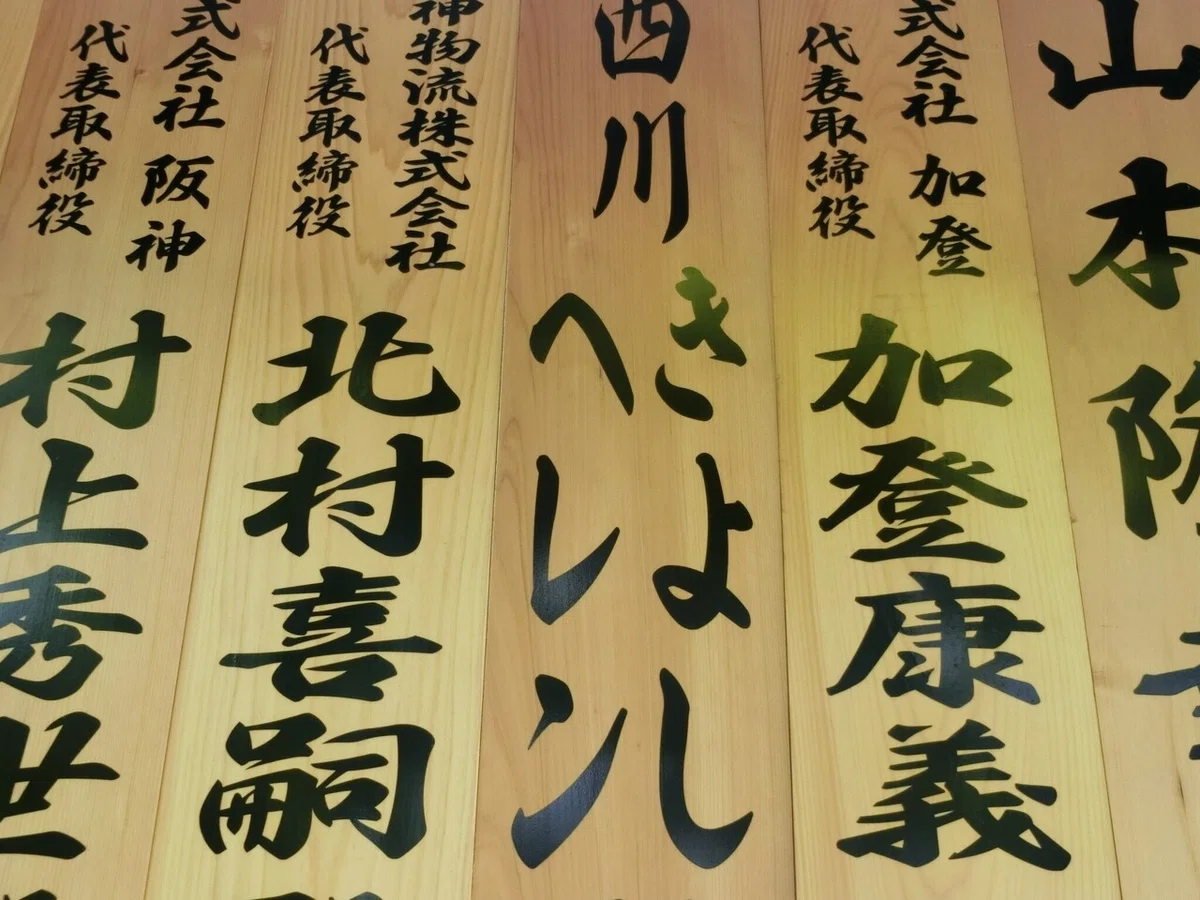 山本
式会社 加登
代表取締役
加登康義
西川
きよし
ヘレン
神物流株式会社
代表取締役
北村喜嗣
式会社 阪神
代表取締役
村上秀世